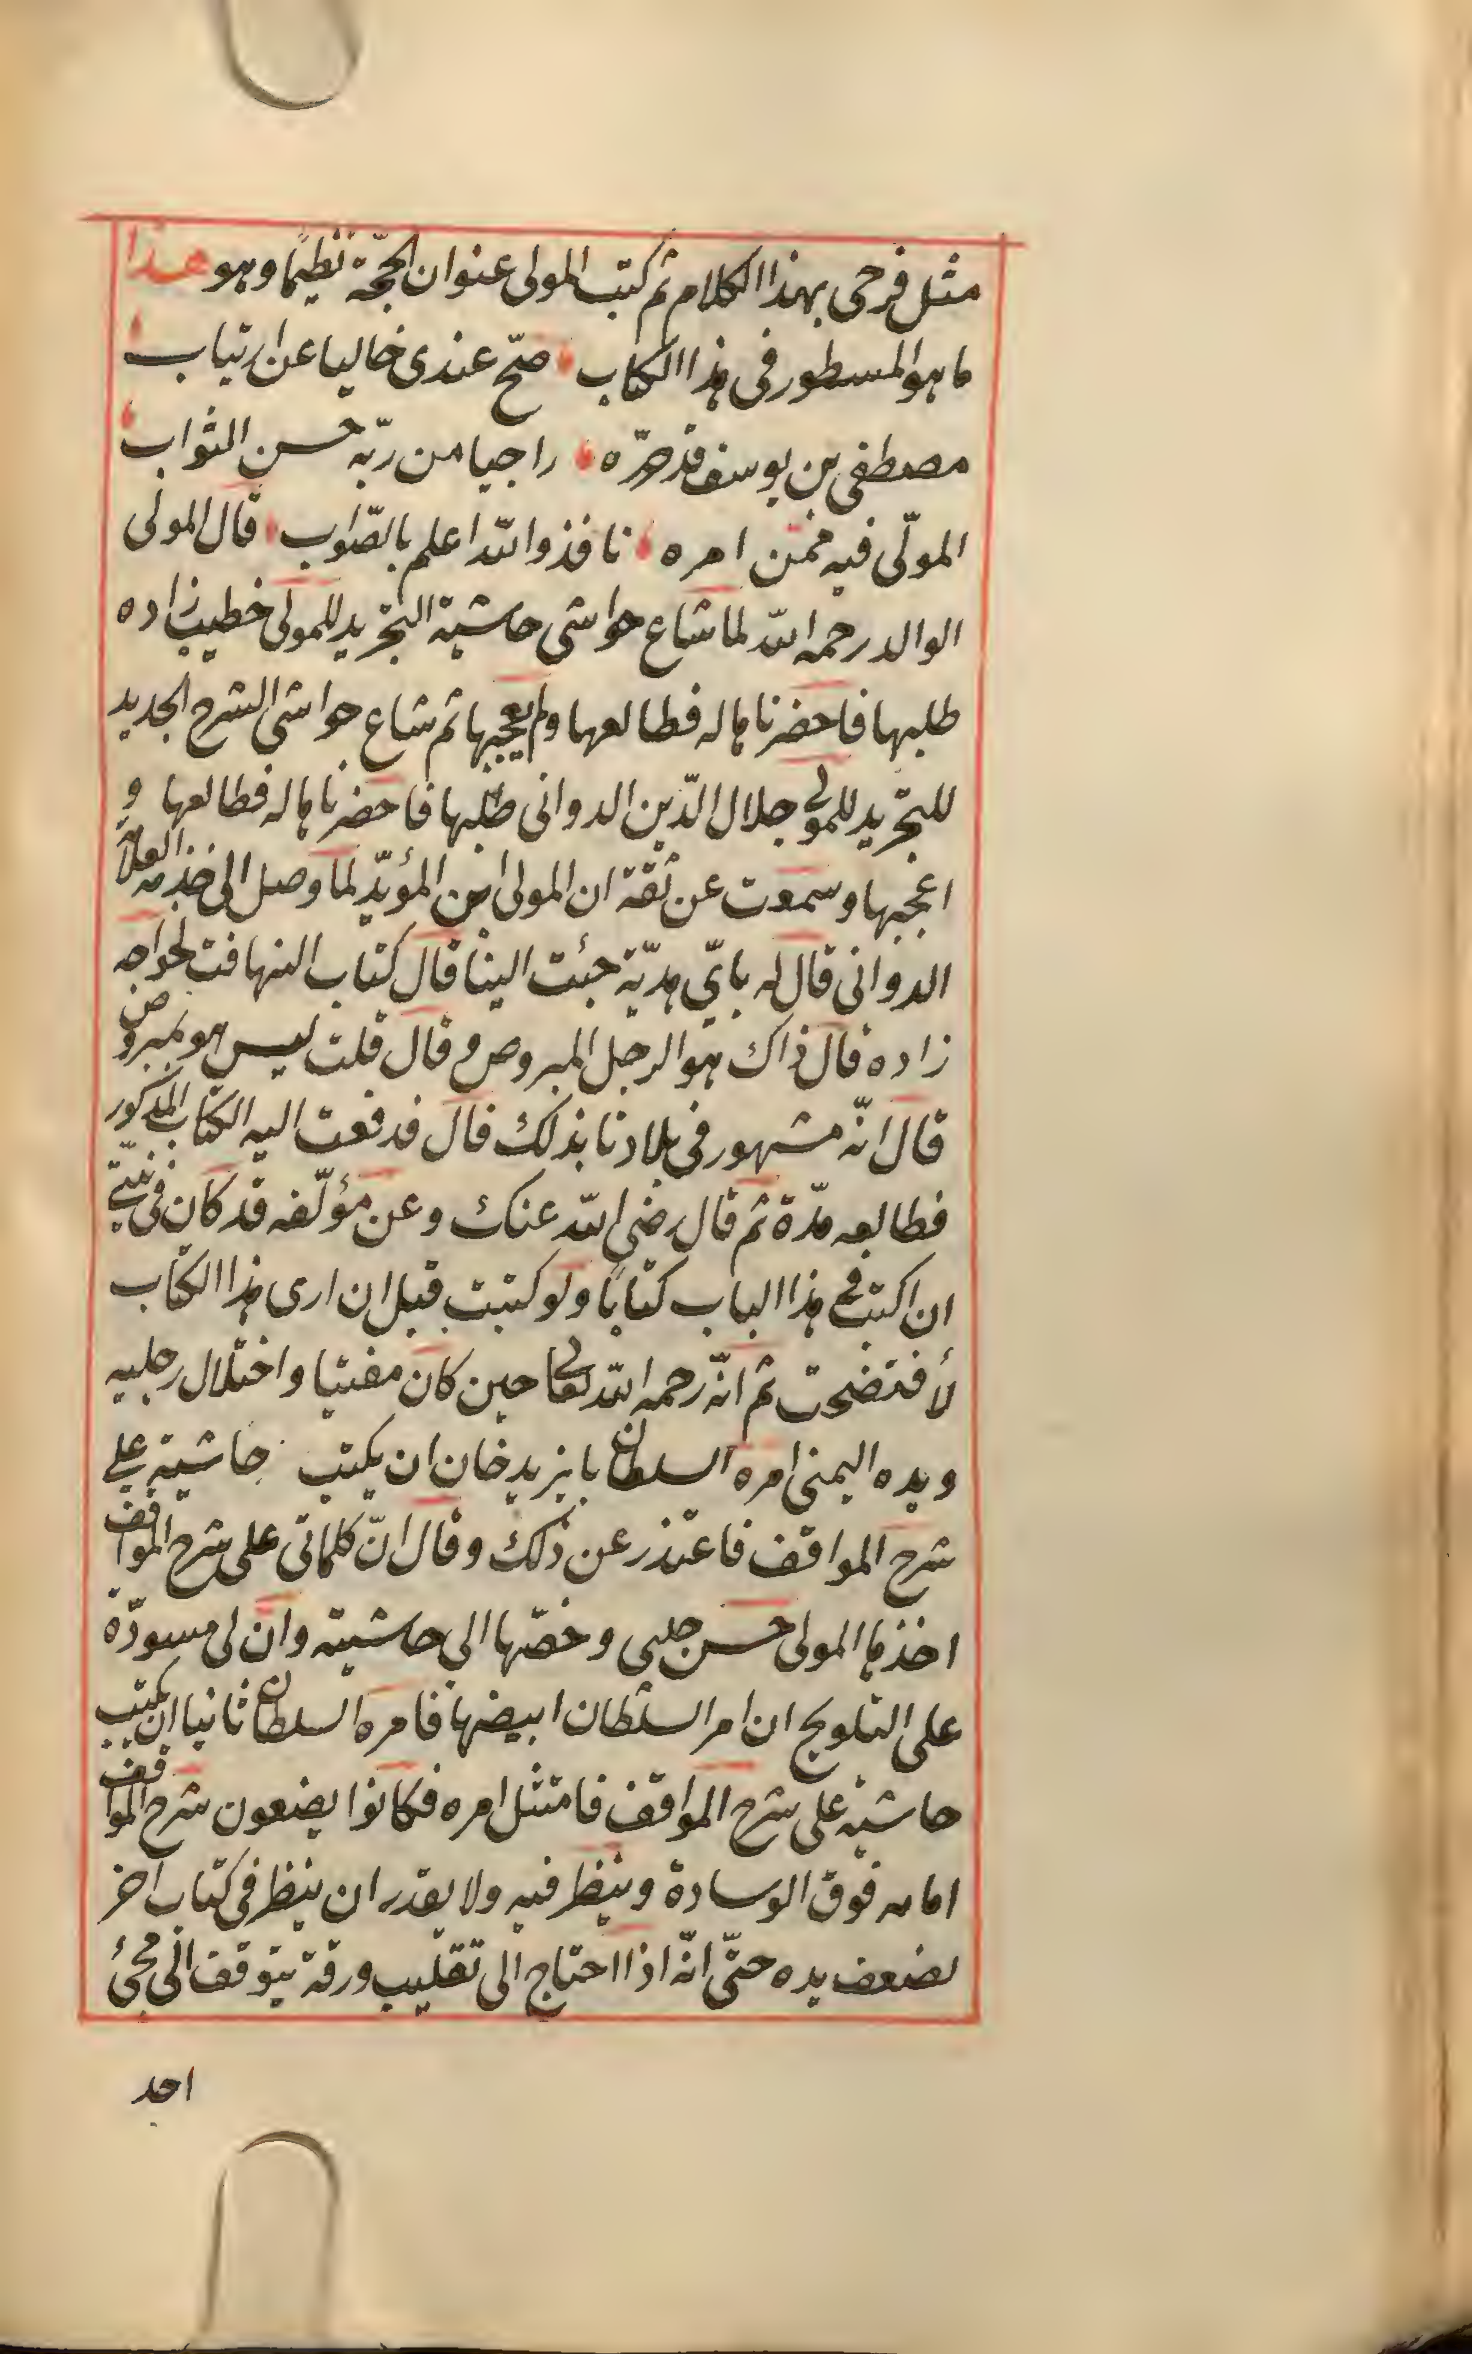 مثل فرحى بهذا الكلام ثم كتب المولى عنوان الحجّة نظيما وهو هذا
ما هو المسطور فى هذا الكتاب صحّ عندى خاليا عن ارتياب
مصطفى بن يوسف قد حرّره راجيا من ربّه حسن الثواب
المولّى فيه ممّن امره نافذ والله اعلم بالصّواب قال المولى
الوالد رحمه الله لما شاع حواشى حاشية التجريد للمولى خطيب زاده
طلبها فاحضرناها له فطالعها ولم يعجبها ثم شاع حواشى الشرح الجديد
للتجريد للمولى جلال الدّين الدوانى طلبها فاحضرناها له فطالعها و
اعجبها وسمعت عن ثقة ان المولى ابن المؤيّد لما وصل الى خدمة العلامة
الدوانى قال له باىّ هديّة جئت الينا قال كتاب التهافت لخواجه
زاده قال ذاك هو الرجل المبروص قال قلت ليس هو بمبروص
قال انّه مشهور فى بلادنا بذلك قال فدفعت اليه الكتاب المذكور
فطالعه مدّة ثم قال رضى الله عنك وعن مؤلّفه قد كان فى نيّتى
ان اكتب فى هذا الباب كتابًا ولو كتبت قبل ان ارى هذا الكتاب
لأفتضحت ثم انّه رحمه الله تعالى حين كان مفتيا واختلال رجليه
ويده اليمنى امره السلطان بايزيد خان ان يكتب حاشية على
شرح المواقف فاعتذر عن ذلك وقال انّ كلماتى على شرح المواقف
اخذها المولى حسن چلبى وضمّها الى حاشيته وان لى مسودّة
على التلويح ان امر السلطان ابيضها فامره السلطان ثانيا ان يكتب
حاشية على شرح المواقف فامتثل امره فكانوا يضعون شرح المواقف
امامه فوق الوسادة وينظر فيه ولا يقدر ان ينظر فى كتاب اخر
لضعف يده حتّى انّه اذا احتاج الى تقليب ورقة يتوقف الى مجئ
احد